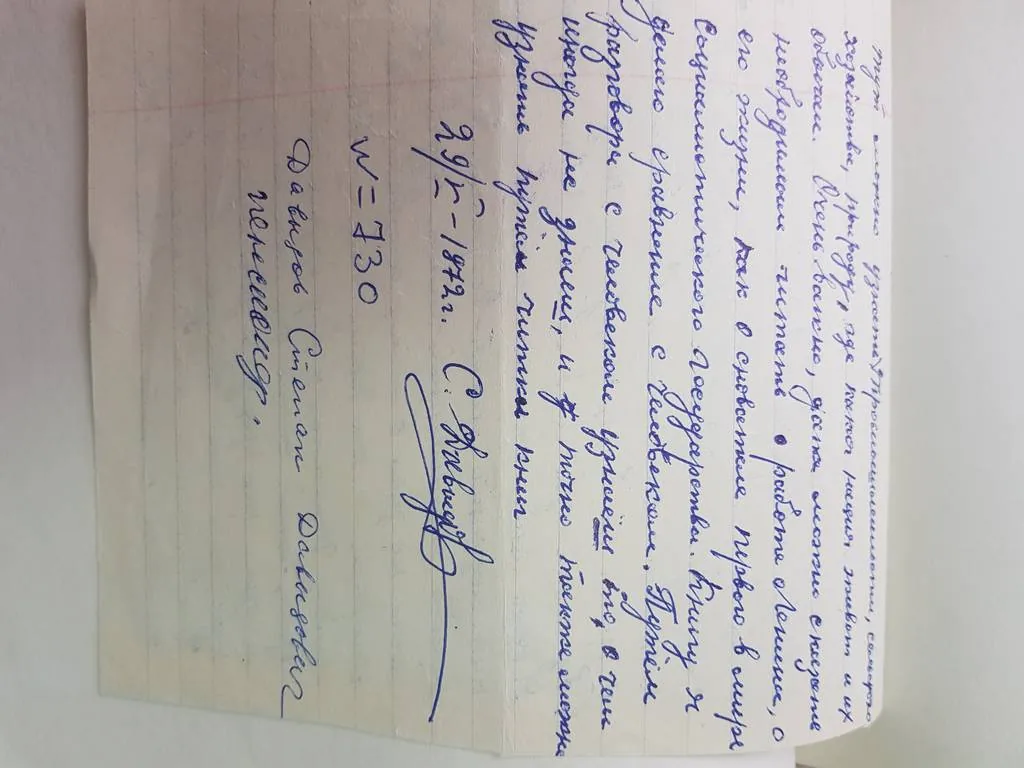 тут можно узнать о промышленности, сельского
хозяйства, природу, где какая нация живет и их
обычаи. Очень важно, даже можно сказать
необходимом читать о работе Ленина, о
его жизни, как о сновател первого в мире
социалистического государства. Книгу я
думаю сравнение с человеком. Путём
разговора с человеком узнаём то, о чем
иногда не знали, и точно также можно
узнать путём читки книг
29/V-1972г. С. Давидов
N=730
Давидов Степан Давидович
пенсионер.